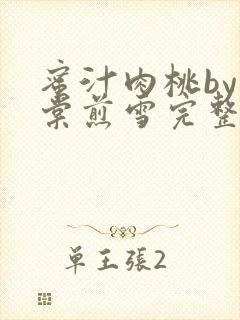 蜜汁肉桃by
棠煎雪完整
单王張2